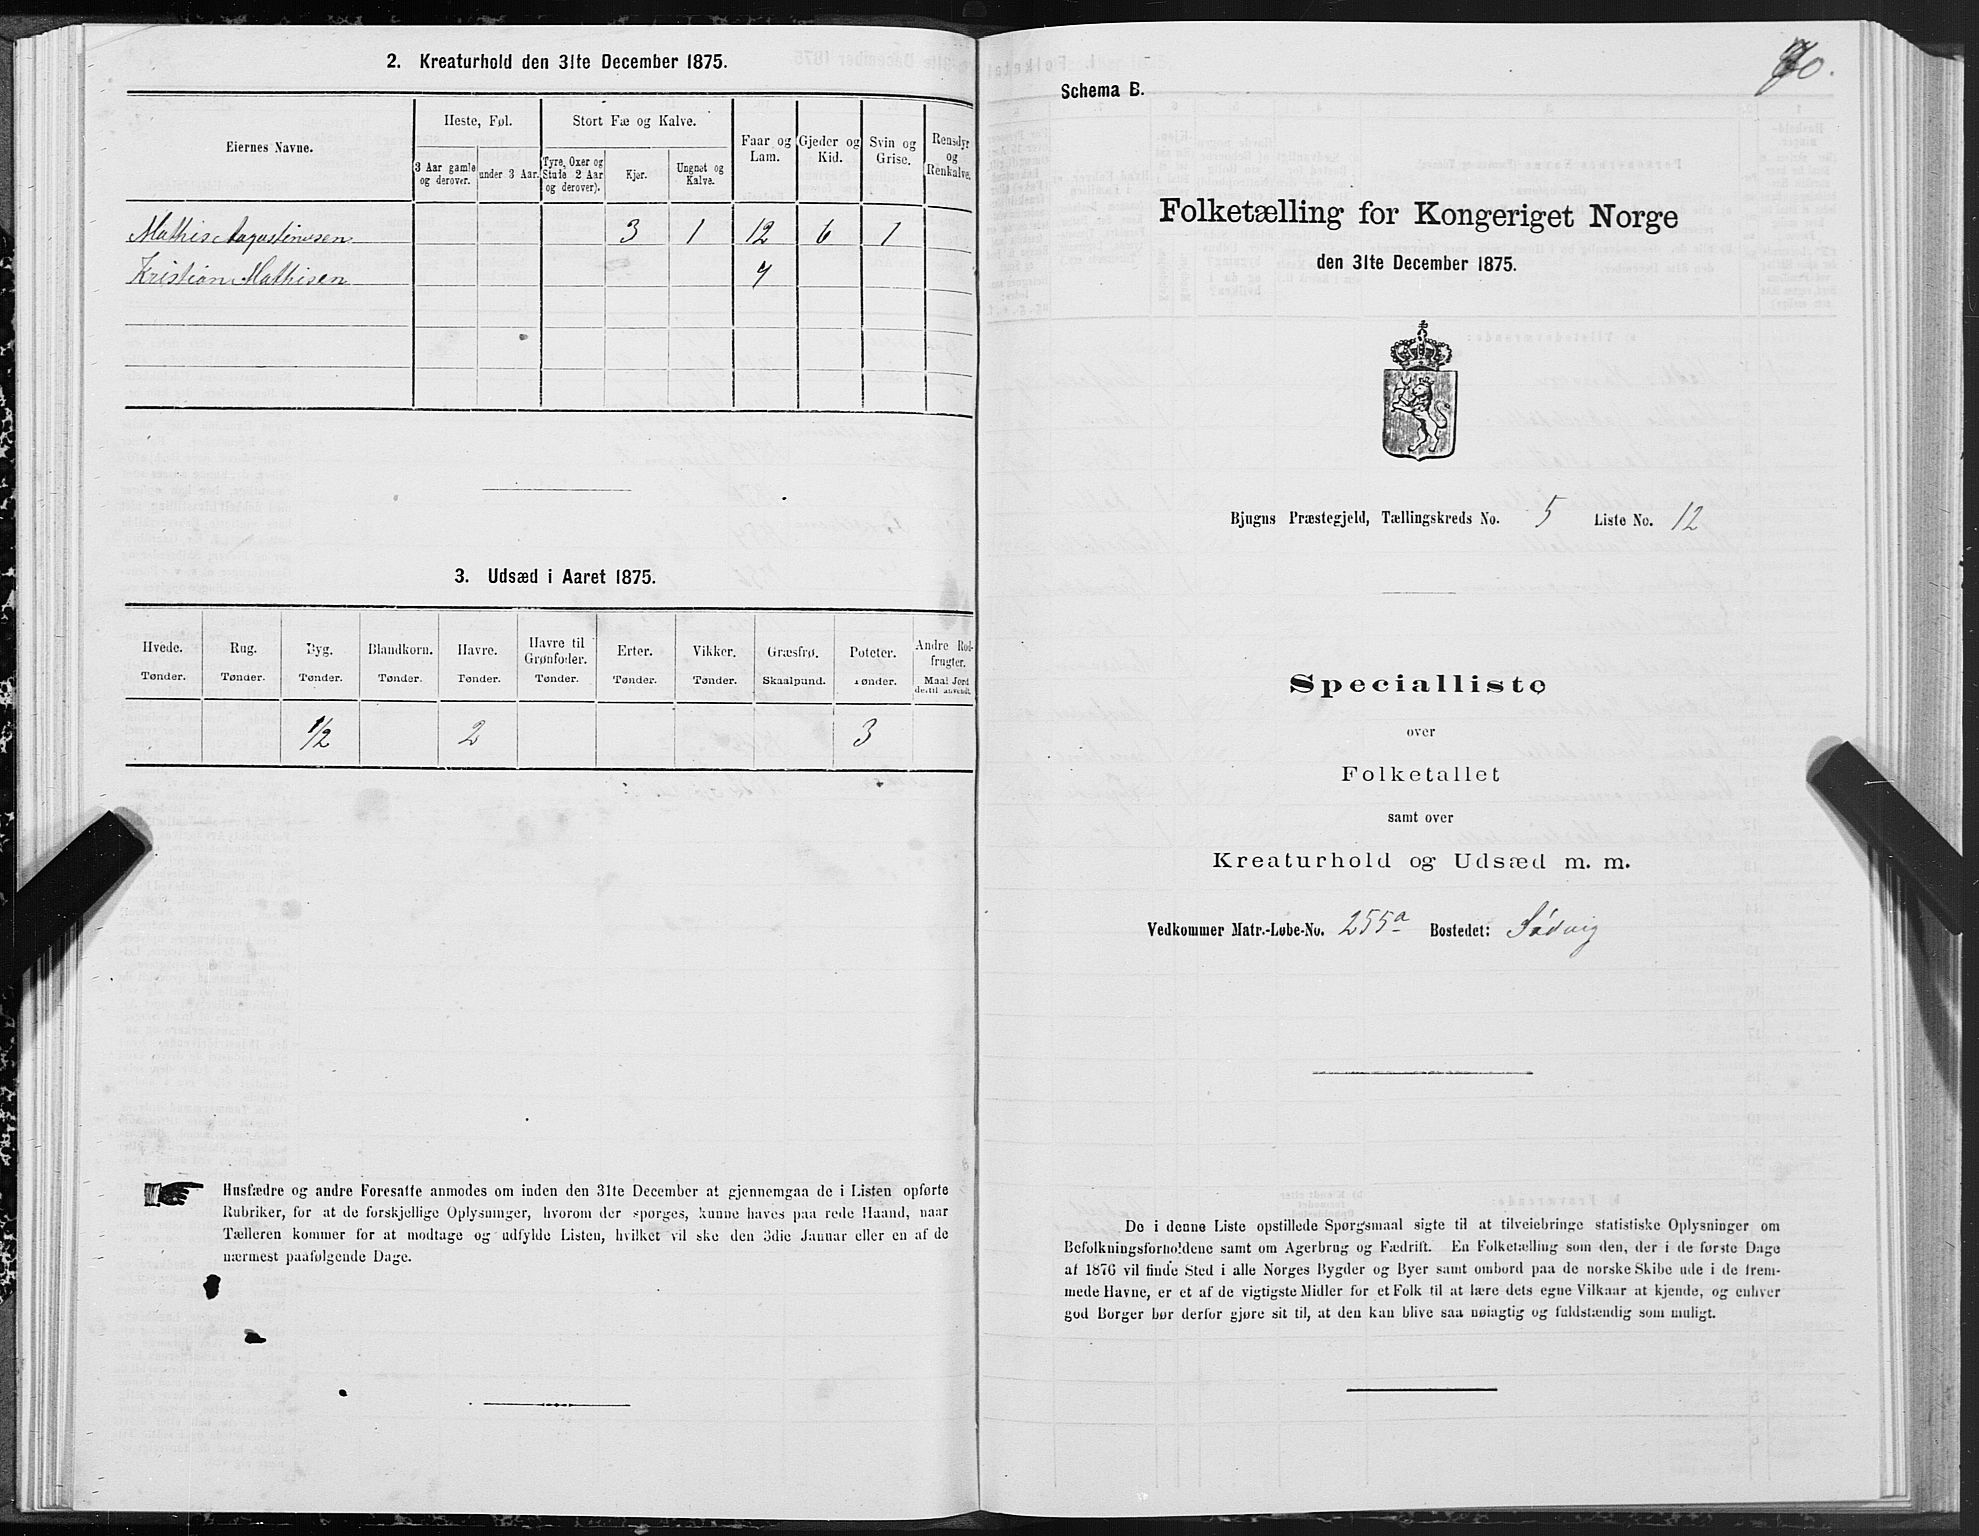 2. Kreaturhold den 31te December 1875.
Eiernes Navne.
Heste, Føl.
Stort Fæ og Kalve.
Faar og Lam.
Gjeder og Kid.
Svin og Grise.
Rensdyr og Renkalve.
3 Aar gamle og derover.
under 3 Aar.
Tyre, Oxer og Stude 2 Aar og derover).
Kjør.
Ungnøt og Kalve.
Mathis Augustinusen 3 1 12 6 1
Kristian Mathisen 7
3. Udsæd i Aaret 1875.
Hvede. Tønder.
Rug. Tønder.
Byg. Tønder.
Blandkorn. Tønder.
Havre. Tønder.
Havre til Grønfoder. Tønder.
Erter. Tønder.
Vikker. Tønder.
Græsfrø. Skaalpund.
Poteter. Tønder.
Andre Rodfrugter. Maal Jord dertil anvendt.
1/2 2 3
Husfædre og andre Foresatte anmodes om inden den 31te December at gjennemgaa de i Listen opførte
Rubriker, for at de forskjellige Oplysninger, hvorom der spørges, kunne haves paa rede Haand, naar
Tælleren kommer for at modtage og udfylde Listen, hvilket vil ske den 3die Januar eller en af de
nærmest paafølgende Dage.
Schema B.
Folketælling for Kongeriget Norge
den 31te December 1875.
Bjugns Præstegjeld, Tællingskreds No. 5 Liste No. 12
Specialliste
over
Folketallet
samt over
Kreaturhold og Udsæd m. m.
Vedkommer Matr.-Løbe-No. 255a Bostedet: Sødvig
De i denne Liste opstillede Spørgsmaal sigte til at tilveiebringe statistiske Oplysninger om
Befolkningsforholdene samt om Agerbrug og Fædrift. En Folketælling som den, der i de første Dage
af 1876 vil finde Sted i alle Norges Bygder og Byer samt ombord paa de norske Skibe ude i de frem-
mede Havne, er et af de vigtigste Midler for et Folk til at lære dets egne Vilkaar at kjende, og enhver
god Borger bør derfor gjøre sit til, at den kan blive saa nøiagtig og fuldstændig som muligt.